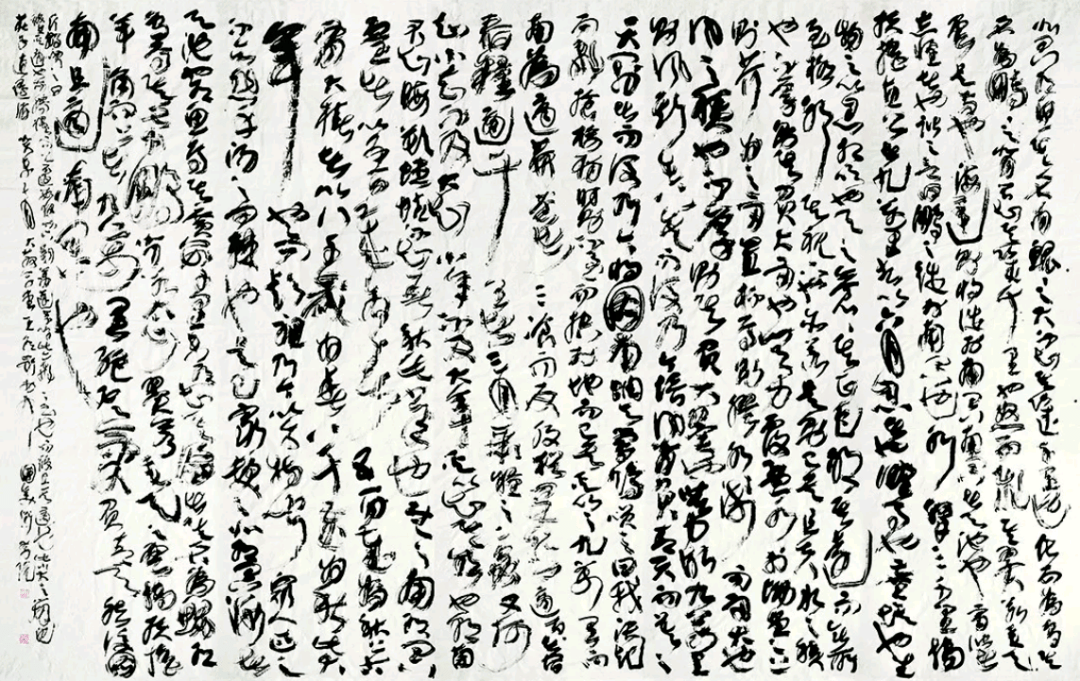 北冥有魚其名為鯤鯤之大不知其幾千里也化而為鳥其
名為鵬鵬之背不知其幾千里也怒而飛其翼若垂天
雲是鳥也海運則將徙於南冥南冥者天池也齊諧
者志怪者也諧之言曰鵬之徙於南冥也水擊三千里摶
扶搖而上者九萬里去以六月息者也野馬也塵埃也生
物之以息相吹也天之蒼蒼其正色邪其遠而無所
至極邪其視下也亦若是則已矣且夫水之積
也不厚則其負大舟也無力覆杯水於坳堂之上
則芥為之舟置杯焉則膠水淺而舟大也
風之積也不厚則其負大翼也無力故九萬里
則風斯在下矣而後乃今培風背負青天而莫之
夭閼者而後乃今將圖南蜩與學鳩笑之曰我決起
而飛搶榆枋時則不至而控於地而已矣奚以之九萬里而
南為適莽蒼者三飡而反腹猶果然適百里者
宿舂糧適千里者三月聚糧之二蟲又何
知小知不及大知小年不及大年奚以知其然也朝菌
不知晦朔蟪蛄不知春秋此小年也楚之南有冥
靈者以五百歲為春五百歲為秋上古
有大椿者以八千歲為春八千歲為秋此大
年也而彭祖乃今以久特聞眾人匹之
不亦悲乎湯之問棘也是已窮髮之北有冥海者
天池也有魚焉其廣數千里未有知其修者其名為鯤有
鳥焉其名為鵬背若太山翼若垂天之雲摶扶搖
羊角而上者九萬里絕雲氣負青天然後圖
南且適南冥也